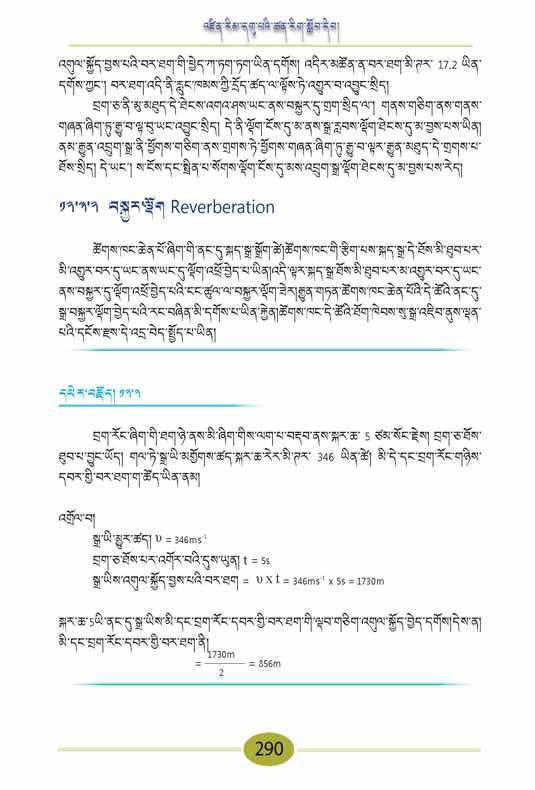 འཛིན་རིམ་དགུ་པའི་ཚན་རིག་སློབ་དེབ།
འགུལ་སྐྱོད་བྱས་པའི་བར་ཐག་གི་ཕྱེད་ཀ་ཏག་ཏག་ཡིན་དགོས། འདིར་མཚོན་ན་བར་ཐག་མི་ཊར་ 17.2 ཡིན་
དགོས་ཀྱང་། བར་ཐག་འདི་ནི་རླུང་ཁམས་ཀྱི་དྲོད་ཚད་ལ་ལྟོས་ཏེ་འགྱུར་བ་འབྱུང་སྲིད།
བྲག་ཅ་ནི་མུ་མཐུད་དེ་ཐེངས་འགའ་ཤས་ཡང་ནས་བསྐྱར་དུ་གྲག་སྲིད་ལ། གནས་གཅིག་ནས་གནས་
གཞན་ཞིག་ཏུ་རྒྱུ་བ་ལྟ་བུ་ཡང་འབྱུང་སྲིད། དེ་ནི་ལྡོག་ངོས་དུ་མ་ནས་སྒྲ་རླབས་ལྡོག་ཐེངས་དུ་མ་བྱས་པས་ཡིན།
ནམ་རྒྱུན་འབྲུག་སྒྲ་ནི་ཕྱོགས་གཅིག་ནས་གྲགས་ཏེ་ཕྱོགས་གཞན་ཞིག་ཏུ་རྒྱུ་བ་ལྟར་རྒྱུན་མཐུད་དེ་གྲགས་པ་
ཐོས་སྲིད། དེ་ཡང་། ས་ངོས་དང་སྤྲིན་པ་སོགས་ལྡོག་ངོས་དུ་མས་འབྲུག་སྒྲ་ལྡོག་ཐེངས་དུ་མ་བྱས་པས་རེད།
༡༢་༣་༢ བསྐྱར་ལྡོག Reverberation
ཚོགས་ཁང་ཆེན་པོ་ཞིག་གི་ནང་དུ་སྐད་སྒྲ་སྒྲོག་ཚེ།ཚོགས་ཁང་གི་རྩིག་པས་སྐད་སྒྲ་དེ་ཐོས་མི་ཐུབ་པར་
མི་འགྱུར་བར་དུ་ཡང་ནས་ཡང་དུ་ལྡོག་འཕྲོ་བྱེད་པ་ཡིན།འདི་ལྟར་སྐད་སྒྲ་ཐོས་མི་ཐུབ་པར་མ་འགྱུར་བར་དུ་ཡང་
ནས་བསྐྱར་དུ་ལྡོག་འཕྲོ་བྱེད་པའི་ངང་ཚུལ་ལ་བསྐྱར་ལྡོག་ཟེར།རྒྱུན་གཏན་ཚོགས་ཁང་ཆེན་པོའི་དེ་ཚོའི་ནང་དུ་
སྒྲ་བསྐྱར་ལྡོག་བྱེད་པའི་རང་བཞིན་མི་དགོས་པ་ཡིན་རྐྱེན།ཚོགས་ཁང་དེ་ཚོའི་ཐོག་ཁེབས་སུ་སྒྲ་འཇིབ་ནུས་ལྡན་
པའི་དངོས་རྫས་དེ་འདྲ་བེད་སྤྱོད་པ་ཡིན།
དཔེར་བརྗོད། ༡༢་༢
བྲག་རོང་ཞིག་གི་ཐག་ཉེ་ནས་མི་ཞིག་གིས་ལག་པ་བརྡབ་ནས་སྐར་ཆ་ 5 ཙམ་སོང་རྗེས། བྲག་ཅ་ཐོས་
ཐུབ་པ་བྱུང་ཡོད། གལ་ཏེ་སྒྲ་ཡི་མགྱོགས་ཚད་སྐར་ཆ་རེར་མི་ཊར་ 346 ཡིན་ཚེ། མི་དེ་དང་བྲག་རོང་གཉིས་
དབར་གྱི་བར་ཐག་ག་ཚོད་ཡིན་ནམ།
འགྲོལ་བ།
སྒྲ་ཡི་མྱུར་ཚད། υ = 346ms⁻¹
བྲག་ཅ་ཐོས་པར་འགོར་བའི་དུས་ཡུན། t = 5s
སྒྲ་ཡིས་འགུལ་སྐྱོད་བྱས་པའི་བར་ཐག = υ x t = 346ms⁻¹ x 5s = 1730m
སྐར་ཆ་5ཡི་ནང་དུ་སྒྲ་ཡིས་མི་དང་བྲག་རོང་དབར་གྱི་བར་ཐག་གི་ལྡབ་གཅིག་འགུལ་སྐྱོད་བྱེད་དགོས།དེས་ན།
མི་དང་བྲག་རོང་དབར་གྱི་བར་ཐག་ནི།
= 1730m / 2 = 856m
290